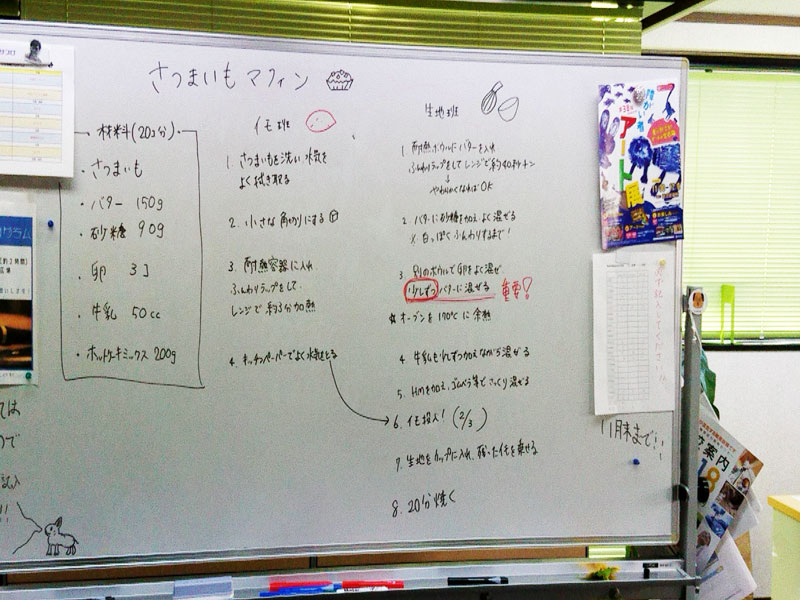 さつまいもマフィン
材料(20コ分)
・さつまいも
・バター 150g
・砂糖 90g
・卵 3コ
・牛乳 50cc
・ホットケーキミックス 200g
イモ班
1. さつまいもを洗い、水気を
よく拭き取る
2. 小さな角切りにする
3. 耐熱容器に入れ
ふんわりラップをして
レンジで約3分加熱
4. キッチンペーパーでよく水気をとる
生地班
1. 耐熱ボウルにバターを入れ
ふんわりラップをしてレンジで約40秒チン
↓
やわらかくなればOK
2. バターに砂糖を加えよく混ぜる
※白っぽくふんわりするまで!
3. 別のボウルで卵をよく混ぜ
少しずつバターに混ぜる 重要!
☆オーブンを170℃に余熱
4. 牛乳も少しずつ加えながら混ぜる
5. HMを加え、ゴムベラ等でさっくり混ぜる
6. イモ投入! (2/3)
7. 生地をカップに入れ、残ったイモを乗せる
8. 20分焼く
アート展
11月末まで!!
案内